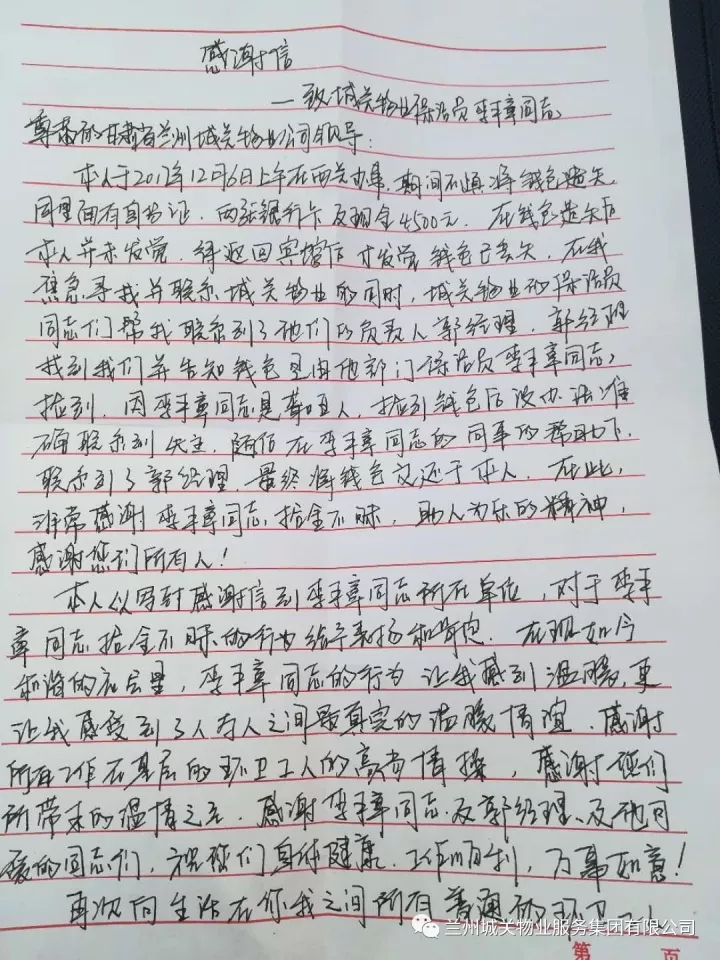 感谢信
—致城关物业保洁员李平章同志
尊敬的甘肃省兰州城关物业公司领导:
本人于2017年12月6日上午在西关办事,期间不慎将钱包遗失,
同里面有身份证、两张银行卡及现金4500元。在钱包遗失后
本人并未发觉,待返回宾馆后才发觉钱包已丢失,在我
焦急寻找并联系城关物业的同时,城关物业的保洁员
同志们帮我联系到了他们的负责人郭经理,郭经理
找到我们并告知钱包是由他部门保洁员李平章同志
捡到,因李平章同志是聋哑人,捡到钱包后没办法准
确联系到失主,随后在李平章同志的同事的帮助下,
联系到了郭经理,最终将钱包交还于本人。在此,
非常感谢李平章同志拾金不昧,助人为乐的精神,
感谢您们所有人!
本人以写封感谢信到李平章同志所在单位,对于李平
章同志拾金不昧的行为给予表扬和肯定。在现如今
和谐的社会里,李平章同志的行为让我感到温暖,更
让我感受到了人与人之间最真实的温暖情谊。感谢
所有工作在基层的环卫工人的高尚情操,感谢您们
所带来的温情之意。感谢李平章同志及郭经理、及他可
爱的同志们,祝您们身体健康、工作顺利,万事如意!
再次向生活在你我之间所有普通的环卫工人
兰州城关物业服务集团有限公司
第 页